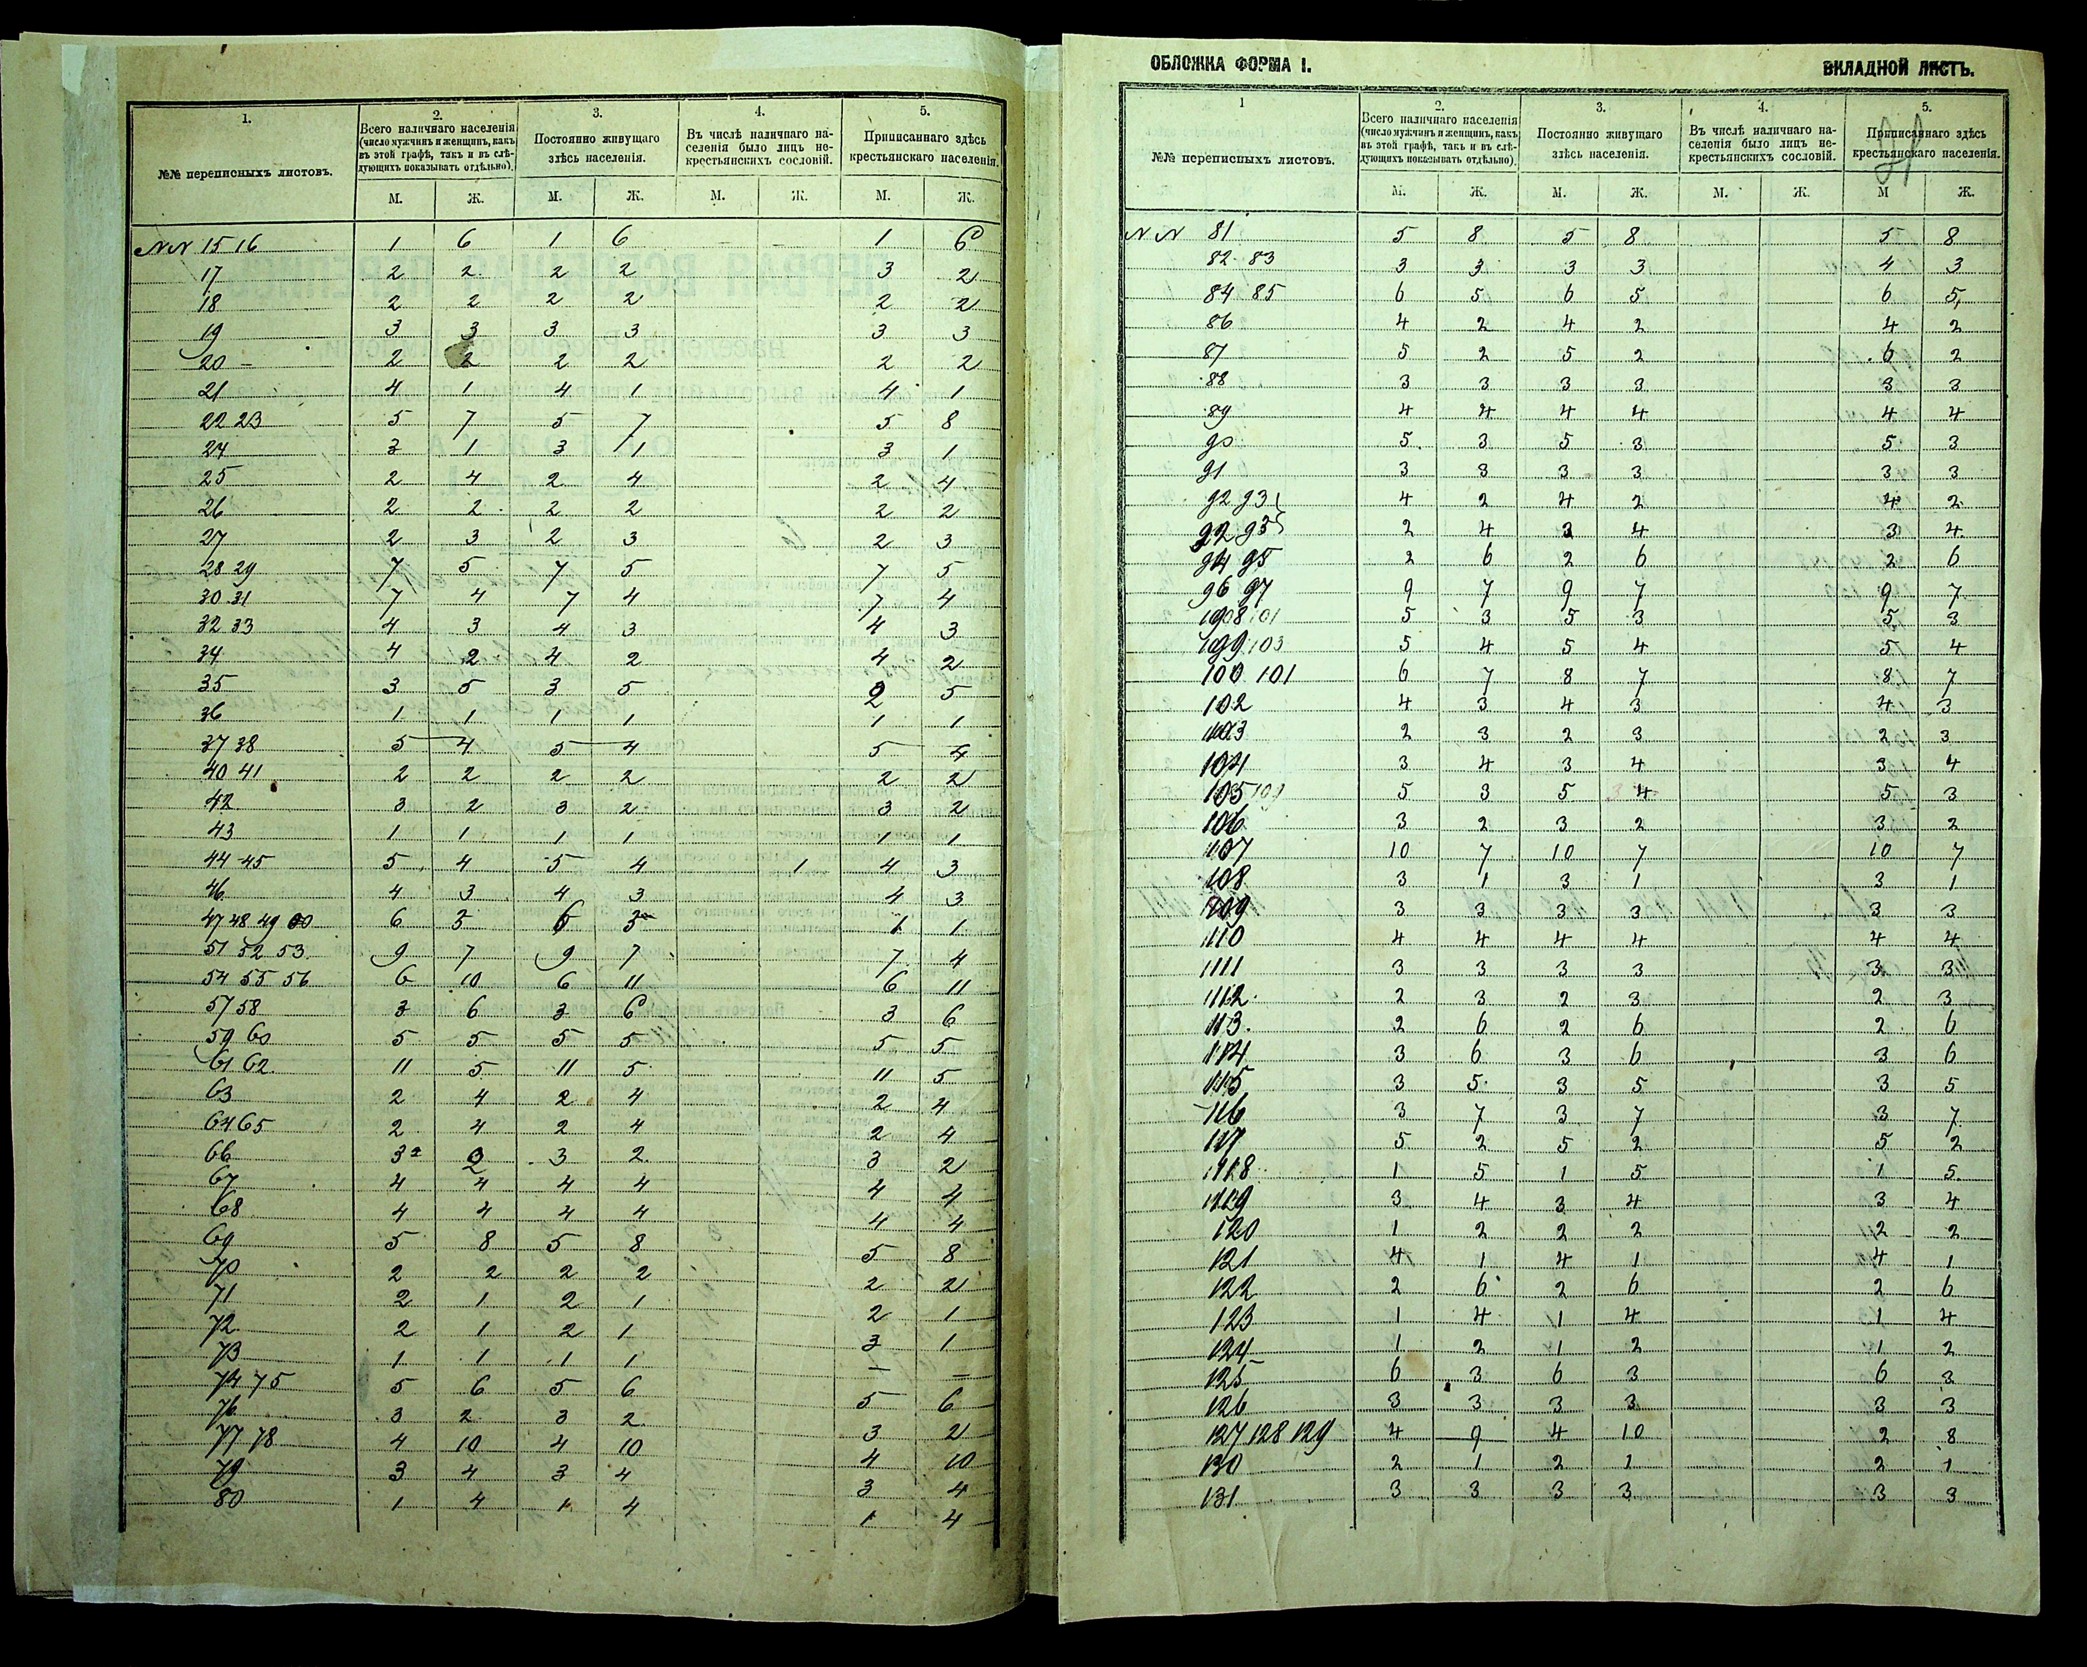 1. 2. 3. 4. 5.
№№ переписныхъ листовъ. Всего наличнаго населенія (число мужчинъ и женщинъ, какъ въ этой графѣ, такъ и въ слѣдующихъ показывать отдѣльно). Постоянно живущаго здѣсь населенія. Въ числѣ наличнаго населенія было лицъ не-крестьянскихъ сословій. Приписаннаго здѣсь крестьянскаго населенія.
М. Ж. М. Ж. М. Ж. М. Ж.
NN 15 16 1 6 1 6 1 6
17 2 2 2 2 3 2
18 2 2 2 2 2 2
19 3 3 3 3 3 3
20 2 2 2 2 2 2
21 4 1 4 1 4 1
22 23 5 7 5 7 5 8
24 3 1 3 1 3 1
25 2 4 2 4 2 4
26 2 2 2 2 2 2
27 2 3 2 3 2 3
28 29 7 5 7 5 7 5
30 31 7 4 7 4 7 4
32 33 4 3 4 3 4 3
34 4 2 4 2 4 2
35 3 5 3 5 2 5
36 1 1 1 1 1 1
37 38 5 4 5 4 5 4
40 41 2 2 2 2 2 2
42 3 2 3 2 3 2
43 1 1 1 1 1 1
44 45 5 4 5 4 1 4 3
46 4 3 4 3 4 3
47 48 49 50 6 3 6 3 1 1
51 52 53 9 7 9 7 7 4
54 55 56 6 10 6 11 6 11
57 58 3 6 3 6 3 6
59 60 5 5 5 5 5 5
61 62 11 5 11 5 11 5
63 2 4 2 4 2 4
64 65 2 4 2 4 2 4
66 3 2 3 2 3 2
67 4 4 4 4 4 4
68 4 4 4 4 4 4
69 5 8 5 8 5 8
70 2 2 2 2 2 2
71 2 1 2 1 2 1
72 2 1 2 1 3 1
73 1 1 1 1 — —
74 75 5 6 5 6 5 6
76 3 2 3 2 3 2
77 78 4 10 4 10 4 10
79 3 4 3 4 3 4
80 1 4 1 4 1 4
ОБЛОЖКА ФОРМА I. ВКЛАДНОЙ ЛИСТЪ.
1 2. 3. 4. 5.
№№ переписныхъ листовъ. Всего наличнаго населенія (число мужчинъ и женщинъ, какъ въ этой графѣ, такъ и въ слѣдующихъ показывать отдѣльно). Постоянно живущаго здѣсь населенія. Въ числѣ наличнаго населенія было лицъ не-крестьянскихъ сословій. Приписаннаго здѣсь крестьянскаго населенія.
М. Ж. М. Ж. М. Ж. М Ж.
NN 81 5 8 5 8 5 8
82 83 3 3 3 3 4 3
84 85 6 5 6 5 6 5
86 4 2 4 2 4 2
87 5 2 5 2 6 2
88 3 3 3 3 3 3
89 4 4 4 4 4 4
90 5 3 5 3 5 3
91 3 3 3 3 3 3
92 93 4 2 4 2 4 2
92 93 2 4 3 4 3 4
94 95 2 6 2 6 2 6
96 97 9 7 9 7 9 7
5 3 5 3 5 3
5 4 5 4 5 4
100 101 6 7 8 7 8 7
102 4 3 4 3 4 3
103 2 3 2 3 2 3
104 3 4 3 4 3 4
105 5 3 5 4 5 3
106 3 2 3 2 3 2
107 10 7 10 7 10 7
108 3 1 3 1 3 1
109 3 3 3 3 3 3
110 4 4 4 4 4 4
111 3 3 3 3 3 3
112 2 3 2 3 2 3
113 2 6 2 6 2 6
114 3 6 3 6 3 6
115 3 5 3 5 3 5
116 3 7 3 7 3 7
117 5 2 5 2 5 2
118 1 5 1 5 1 5
119 3 4 3 4 3 4
120 1 2 2 2 2 2
121 4 1 4 1 4 1
122 2 6 2 6 2 6
123 1 4 1 4 1 4
124 1 2 1 2 1 2
125 6 3 6 3 6 3
126 3 3 3 3 3 3
127 128 129 4 9 4 10 2 8
130 2 1 2 1 2 1
131 3 3 3 3 3 3